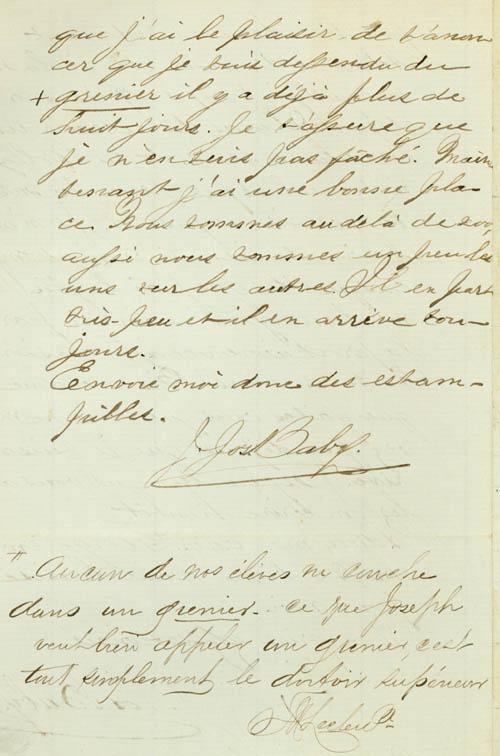 que j'ai le plaisir de t'anon
cer que je suis dessendu du
+ grenier il y a déjà plus de
huit jours. Je t'assure que
je n'en suis pas fâché. Main
tenant j'ai une bonne pla-
ce. Nous sommes au delà de 200
aussi nous sommes un peu les
uns sur les autres. Il en part
très-peu et il en arrive tou-
jours.
Envoie moi donc des estam-
pilles.
J. Jos Baby.
+ Aucun de nos élèves ne couche
dans un grenier. ce que Joseph
veut bien appeler un grenier c'est
tout simplement le dortoir supérieur